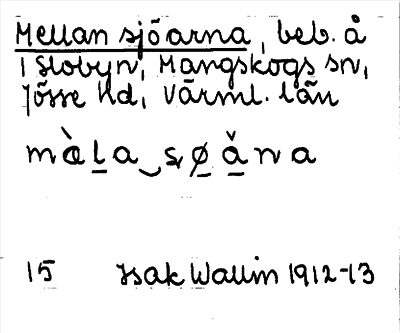 Mellan sjöarna, beb. å
1 Slobyn, Mangskogs sn,
Jösse Hd, Värml. län
15 Isak Wallin 1912-13